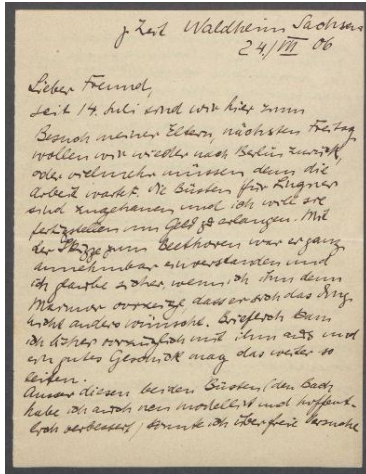 z. Zeit Waldheim Sachsen
24./VII 06
Lieber Freund,
seit 14. Juli sind wir hier zum
Besuch meiner Eltern, nächsten Freitag
wollen wir wieder nach Berlin zurück,
oder vielmehr müssen, denn die
Arbeit wartet. Die Büsten für Lingner
sind zugehauen und ich will sie
fertigstellen um Geld zu erlangen. Mit
der Skizze zum Beethoven war er ganz
annehmbar einverstanden und
ich glaube sicher, wenn ich ihm den
Marmor vorzeige, dass er sich das Ding
nicht anders wünscht. Brieflich kam
ich bisher mit ihm aus und
ein gutes Geschick mag das weiter so
leiten.
Ausser diesen beiden Büsten (den Bach
habe ich auch neu modelliert und hoffent-
lich verbessert) konnte ich über freie Versuche